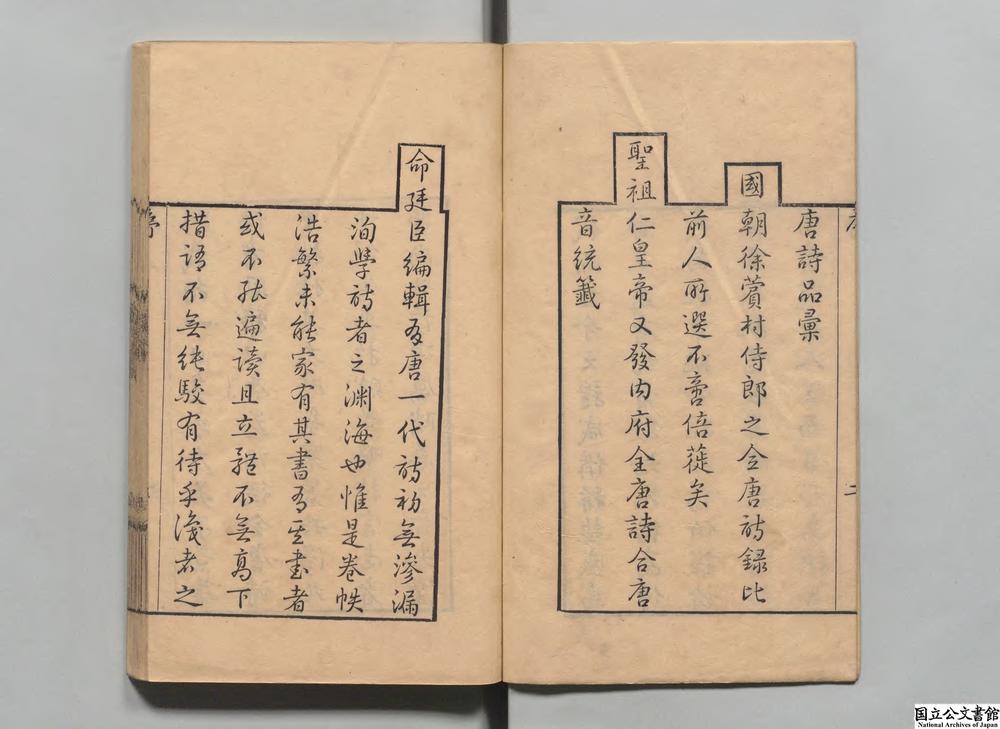 唐詩品彙
國朝徐蕢村侍郎之全唐詩録比
前人所選不啻倍蓰矣
聖祖仁皇帝又發內府全唐詩合唐
音統籤
二
命廷臣編輯為唐一代詩初無滲漏
洵學詩者之淵海也惟是卷帙
浩繁未能家有其書為有其書者
或不能遍讀且立體不無高下
措語不無純駁有待乎淺者之
序
国立公文書館
National Archives of Japan